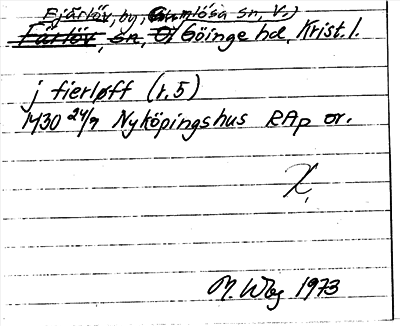 Fjärlöv, by, Gumlösa sn, V.)
Färlöv, sn, Ö Göinge hd, Krist. l.
j fierløff (r.5)
1430 24/9 Nyköpingshus RAp or.
X,
M. Wbg 1973